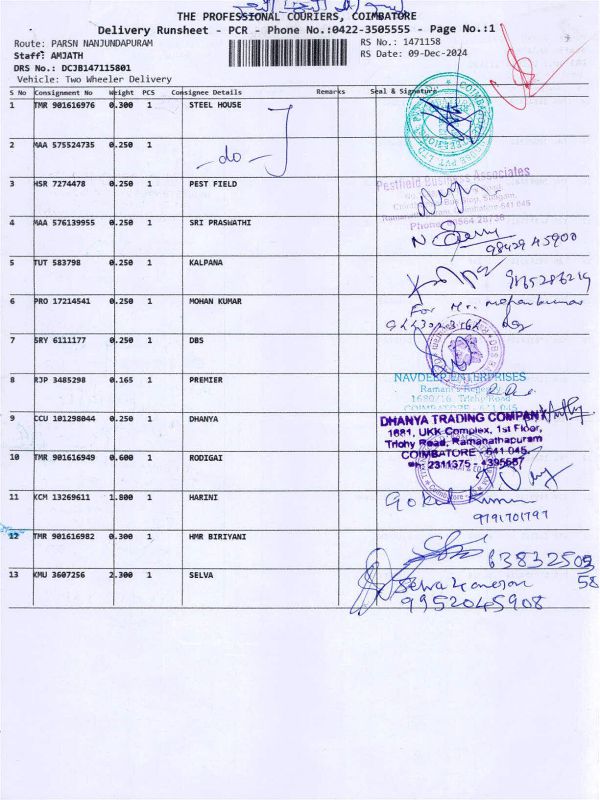 THE PROFESSIONAL COURIERS, COIMBATORE
Delivery Runsheet - PCR - Phone No.:0422-3505555 - Page No.:1
Route: PARSN NANJUNDAPURAM
RS No.: 1471158
Staff: AMJATH
RS Date: 09-Dec-2024
DRS No.: DCJB147115801
Vehicle: Two Wheeler Delivery
S No Consignment No Weight PCS Consignee Details Remarks Seal & Signature
1 TMR 901616976 0.300 1 STEEL HOUSE
2 MAA 575524735 0.250 1 -do-
3 HSR 7274478 0.250 1 PEST FIELD
Pestfield Business Associates
4 MAA 576139955 0.250 1 SRI PRASWATHI
98429 45900
5 TUT 583798 0.250 1 KALPANA
6 PRO 17214541 0.250 1 MOHAN KUMAR
For Mr. Mohankumar
7 SRY 6111177 0.250 1 DBS
8 RJP 3485298 0.165 1 PREMIER
NAVDEEP ENTERPRISES
1680/16, Trichy Road
COIMBATORE - 641 045
9 CCU 101298044 0.250 1 DHANYA
DHANYA TRADING COMPANY
1681, UKK Complex, 1st Floor,
Trichy Road, Ramanathapuram
COIMBATORE - 641 045.
10 TMR 901616949 0.600 1 RODIGAI
11 KCM 13269611 1.800 1 HARINI
Gokul Kumar
9791701797
12 TMR 901616982 0.300 1 HMR BIRIYANI
13 KMU 3607256 2.300 1 SELVA
9952045908